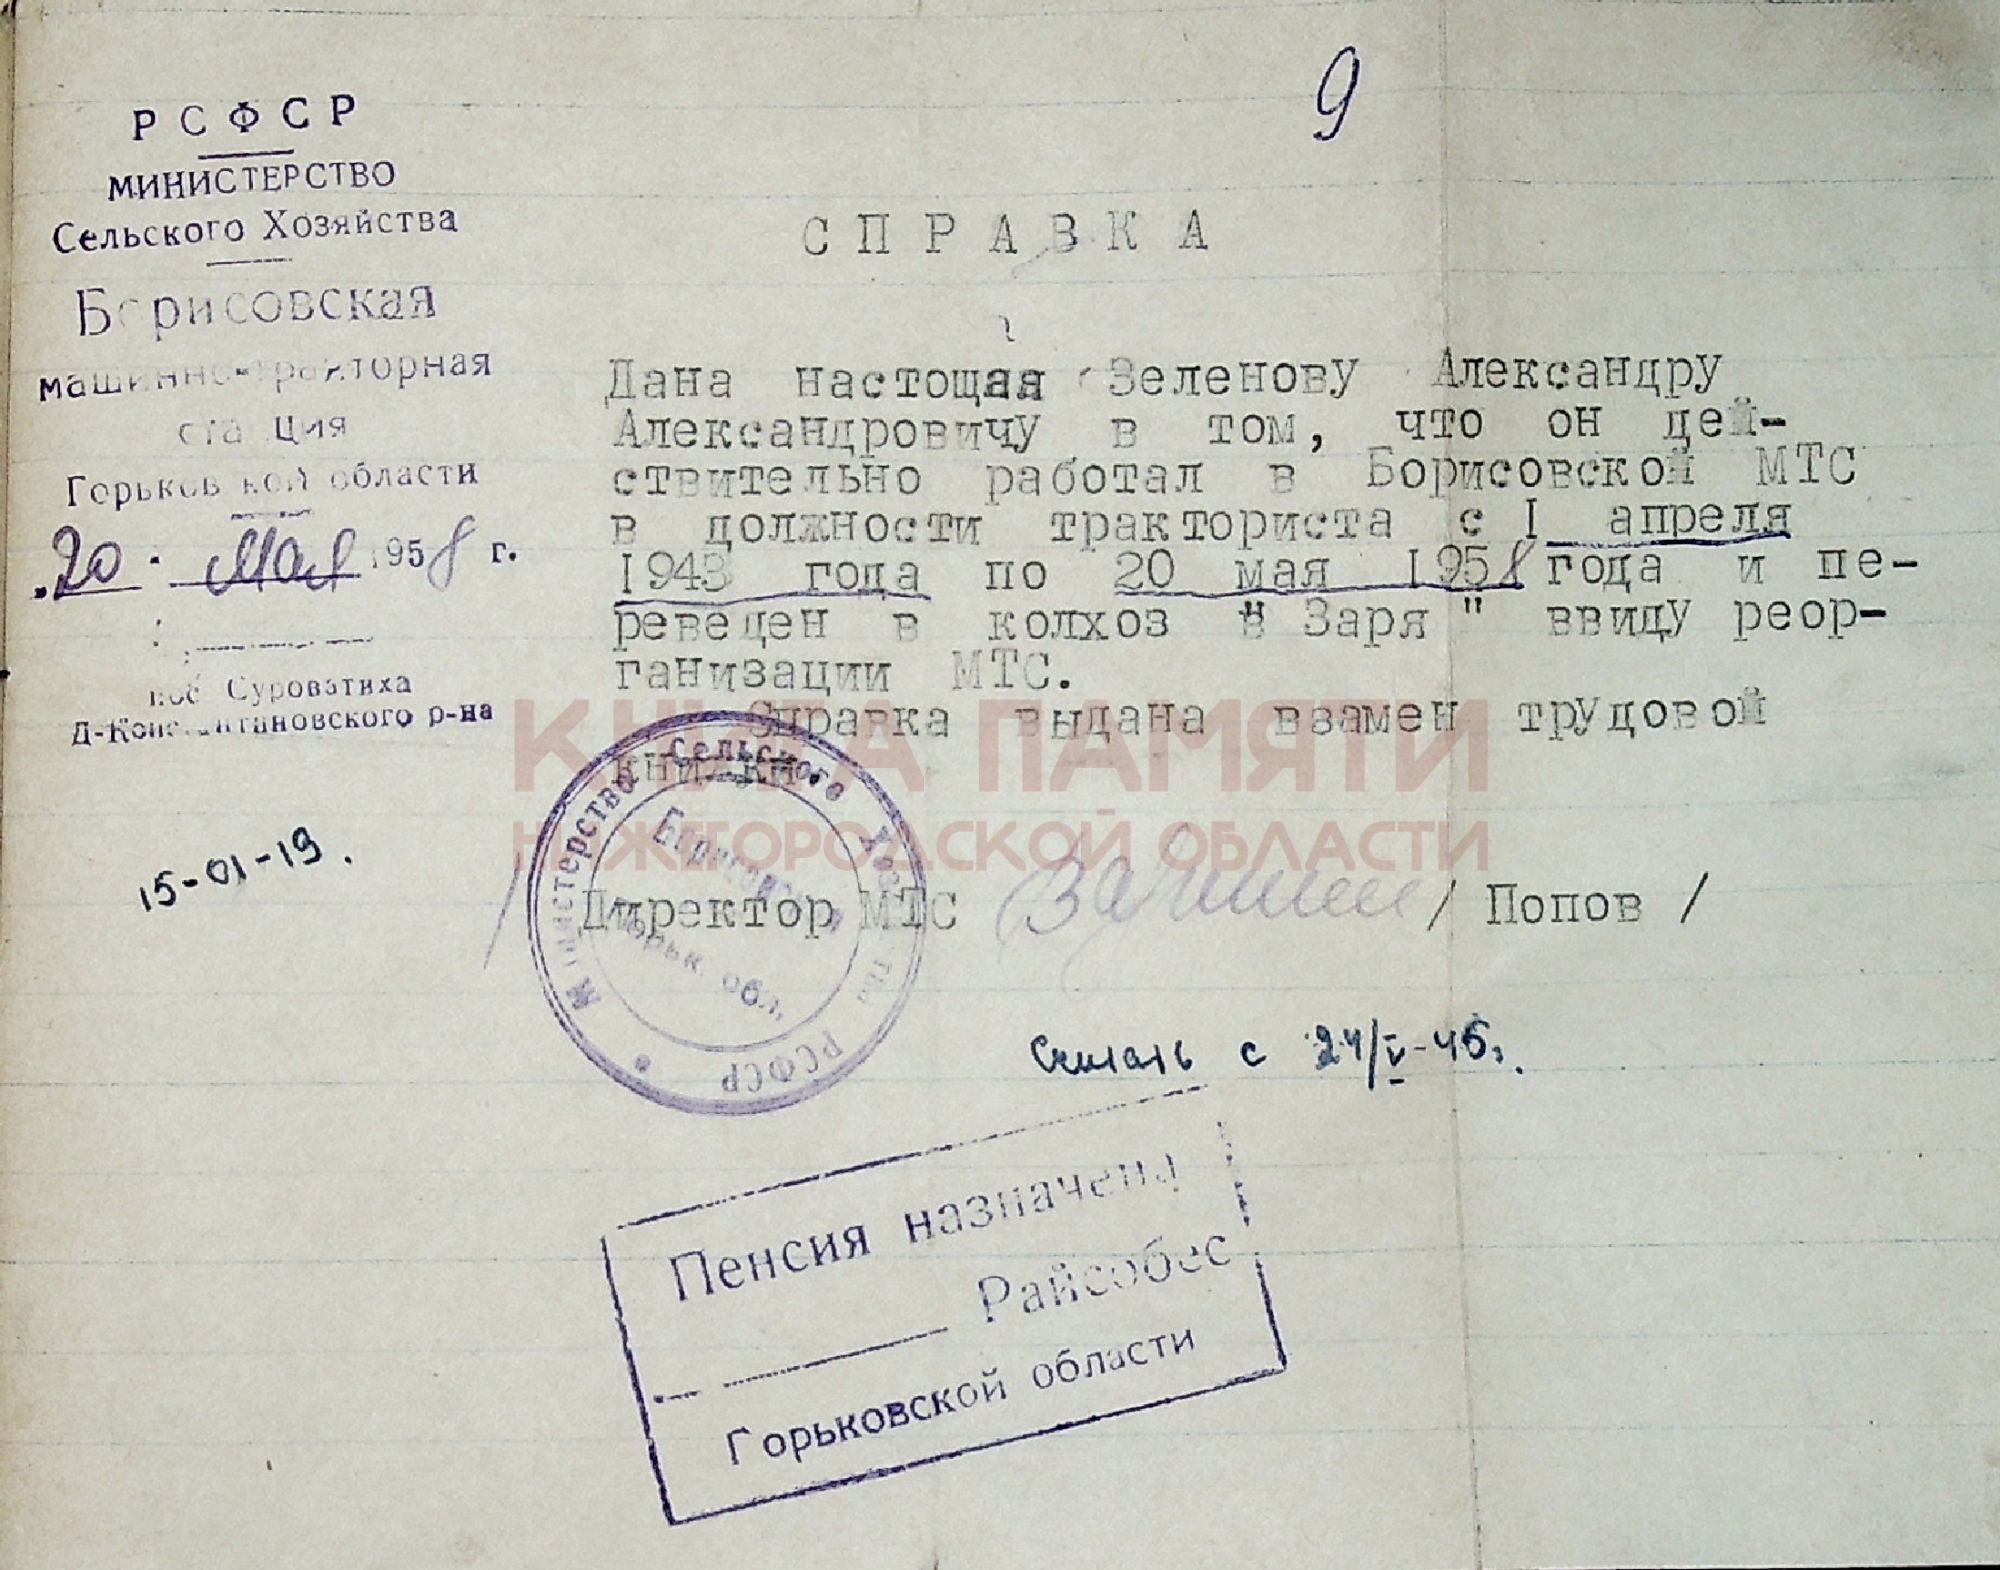 9
РСФСР
МИНИСТЕРСТВО
Сельского Хозяйства
Борисовская
машинно-тракторная
станция
Горьковской области
20 · Мая 1958 г.
пос Суроватиха
Д-Константиновского р-на
15-01-19.
СПРАВКА
Дана настоящая Зеленову Александру
Александровичу в том, что он дей-
ствительно работал в Борисовской МТС
в должности тракториста с I апреля
1943 года по 20 мая 1958 года и пе-
реведен в колхоз "Заря" ввиду реор-
ганизации МТС.
Справка выдана взамен трудовой
книжки.
КНИГА ПАМЯТИ
НИЖЕГОРОДСКОЙ ОБЛАСТИ
Директор МТС / Попов /
Министерство Сельского Хозяйства РСФСР
Борисовская
Горьк. обл.
Считать с 24/V-45.
Пенсия назначена
Райсобес
Горьковской области